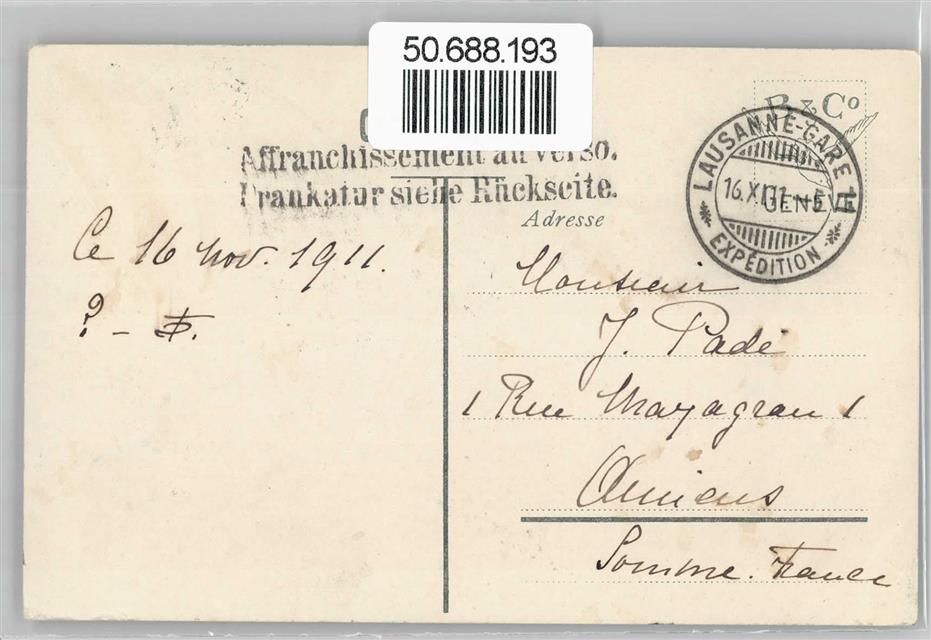 50.688.193
B & Co
GENÈVE
LAUSANNE-GARE
EXPÉDITION
16.XI.11.-5
Affranchissement au verso.
Frankatur siehe Rückseite.
Adresse
Ce 16 nov. 1911.
? -
Monsieur
J. Padé
1 Rue Mazagran 1
Amiens
Somme. France